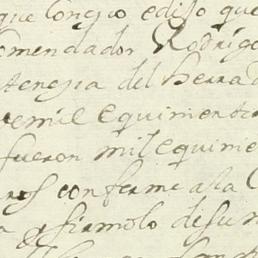 que conçio edijo que
omendador Rodrigo
tenençia del herrad
emil e quinientos
fueron mil e quinie
conforme a la
firmolo de su n